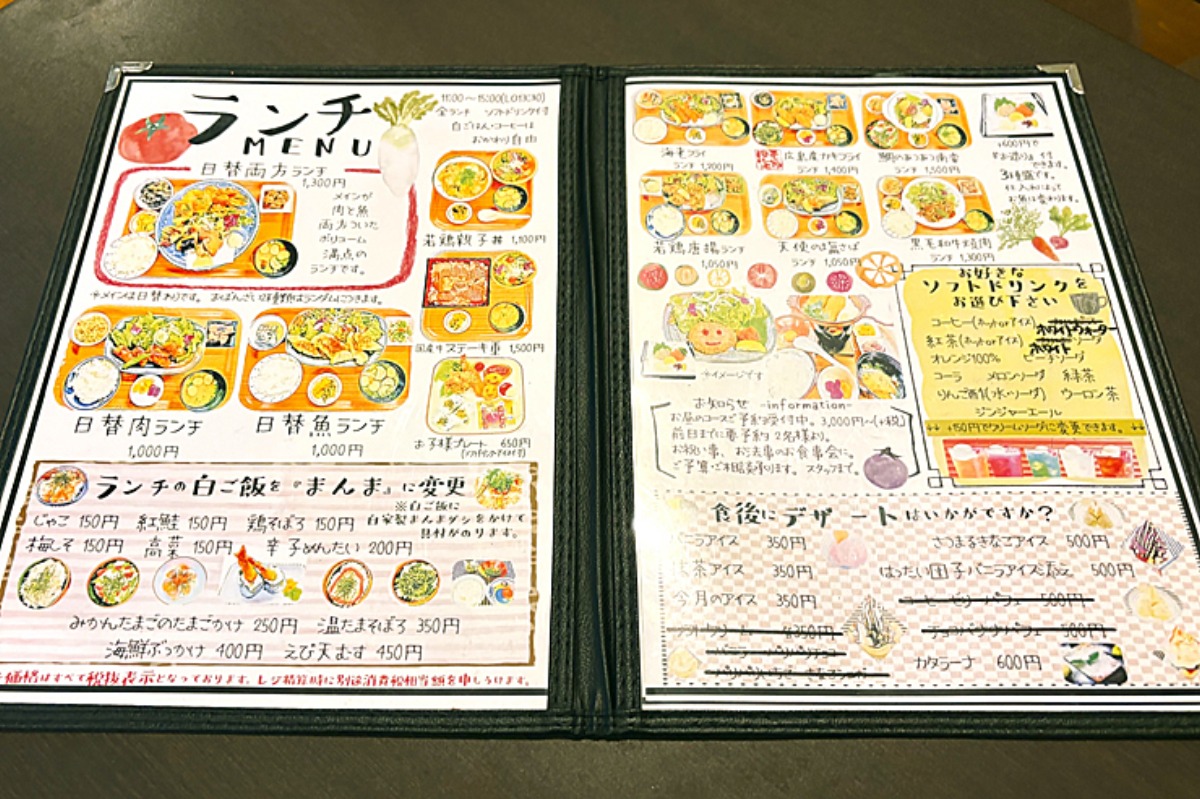 ランチ
MENU
11:00〜15:00(L.O13:30)
全ランチ ソフトドリンク付
白ごはん・コーヒーは
おかわり自由
日替両方ランチ
1,300円
メインが
肉と魚
両方ついた
ボリューム
満点の
ランチです。
若鶏親子丼 1,100円
国産牛ステーキ重 1,500円
お子様プレート 650円
日替肉ランチ
1,000円
日替魚ランチ
1,000円
ランチの白ご飯を『まんま』に変更
※白ご飯に
自家製まんまダシをかけて
具材がのります。
じゃこ 150円 紅鮭 150円 鶏そぼろ 150円
梅しそ 150円 高菜 150円 辛子めんたい 200円
みかんたまごのたまごかけ 250円 温たまそぼろ 350円
海鮮ぶっかけ 400円 えび天むす 450円
価格はすべて税抜表示となっております。レジ精算時に別途消費税相当額を申しうけます。
海老フライ
ランチ 1,200円
広島産カキフライ
ランチ 1,400円
ランチ 1,500円
+600円で
『お造り』付
できます。
3種盛です。
仕入れによって
お魚は変わります。
若鶏唐揚ランチ
1,050円
天使の塩さば
ランチ 1,050円
黒毛和牛焼肉
ランチ 1,300円
お好きな
ソフトドリンクを
お選び下さい
コーヒー(ホットorアイス)
ホワイトウォーター
紅茶(ホットorアイス)
ホワイト
オレンジ100% ピーチソーダ
コーラ メロンソーダ 緑茶
りんご酢(水・ソーダ) ウーロン茶
ジンジャーエール
+150円でクリームソーダに変更できます。
イメージです
お知らせ -information-
お昼のコースご予約受付中。3,000円〜(+税)
前日までに要予約 2名様より。
お祝い事、お法事のお食事会に。
ご予算・ご相談承ります。スタッフまで。
食後にデザートはいかがですか?
バニラアイス 350円
さつまるきなこアイス 500円
抹茶アイス 350円
はったい団子バニラアイス添え 500円
今月のアイス 350円
コーヒーゼリーパフェ 500円
チョコバナナパフェ 500円
カタラーナ 600円